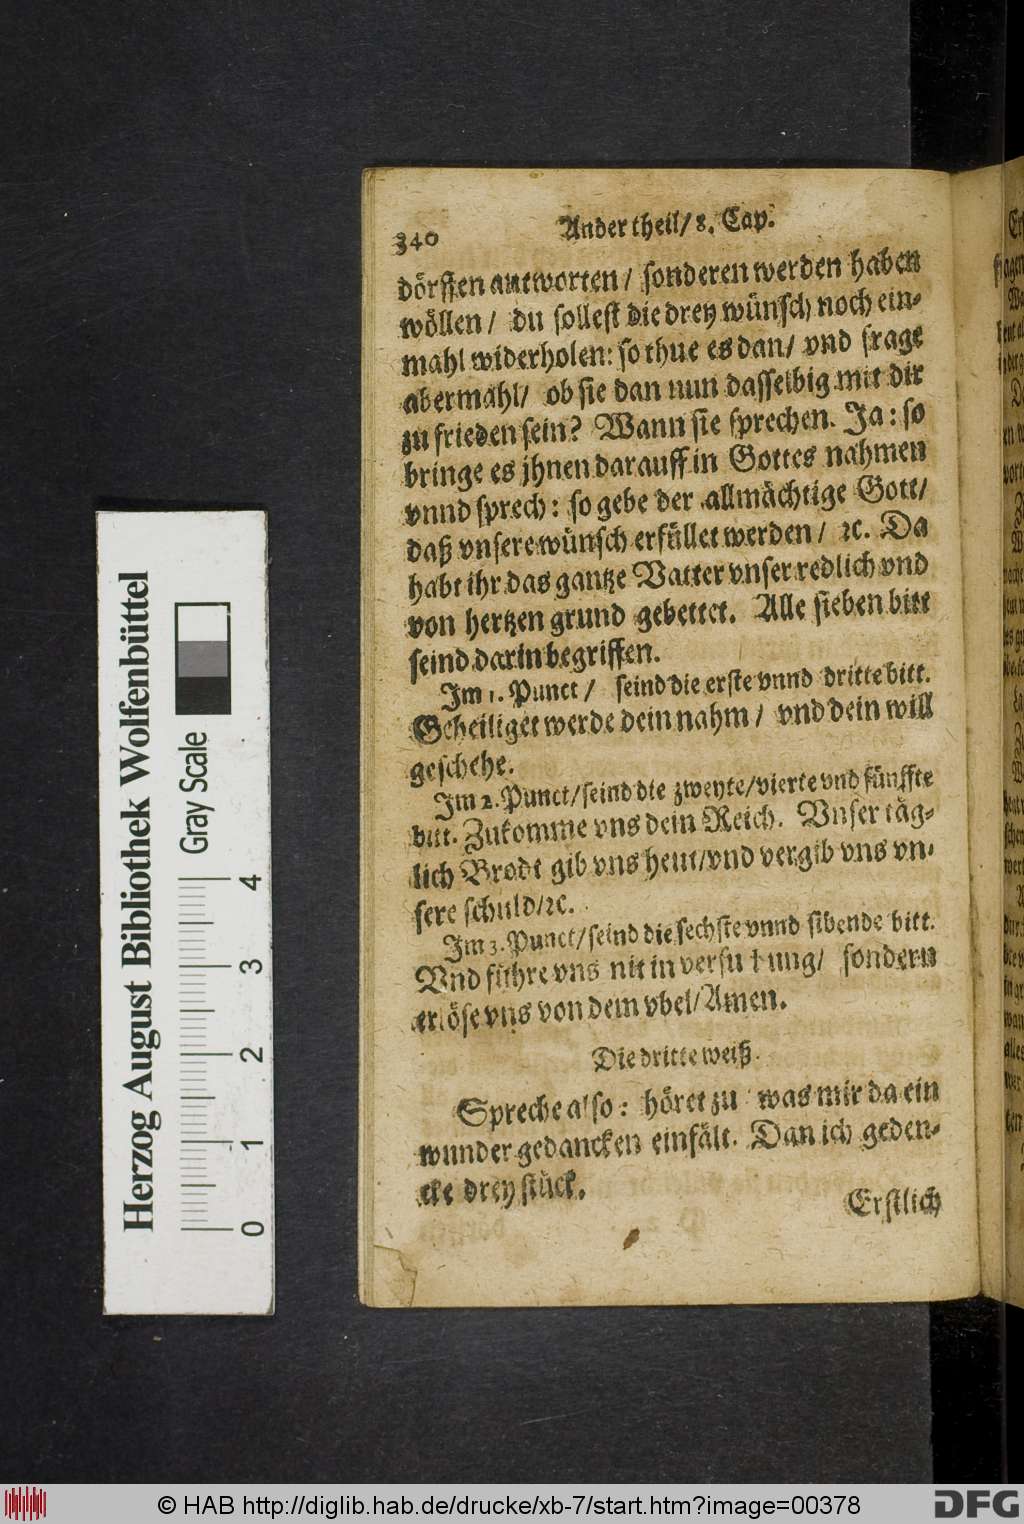 340 Ander theil/ 8. Cap.
dörffen antworten / sonderen werden haben
wöllen / du sollest die drey wünsch noch ein-
mahl widerholen: so thue es dan/ vnd frage
abermahl/ ob sie dan nun dasselbig mit dir
zu frieden sein? Wann sie sprechen. Ja: so
bringe es jhnen darauff in Gottes nahmen
vnnd sprech: so gebe der allmächtige Gott/
daß vnsere wünsch erfüllet werden / ꝛc. Da
habt ihr das gantze Vatter vnser redlich vnd
von hertzen grund gebettet. Alle sieben bitt
seind darin begriffen.
Im 1. Punct / seind die erste vnnd dritte bitt.
Geheiliget werde dein nahm / vnd dein will
geschehe.
Im 2. Punct/ seind die zweyte/vierte vnd fünffte
bitt. Zukomme vns dein Reich. Vnser täg-
lich Brodt gib vns heut/vnd vergib vns vn-
sere schuld/ꝛc.
Im 3. Punct/ seind die sechste vnnd sibende bitt.
Vnd führe vns nit in versuchung/ sondern
erlöse vns von dem vbel/Amen.
Die dritte weiß.
Spreche also: höret zu was mir da ein
wunder gedancken einfält. Dan ich geden-
cke drey stück.
Erstlich
Herzog August Bibliothek Wolfenbüttel
Gray Scale
0 1 2 3 4
© HAB http://diglib.hab.de/drucke/xb-7/start.htm?image=00378
DFG